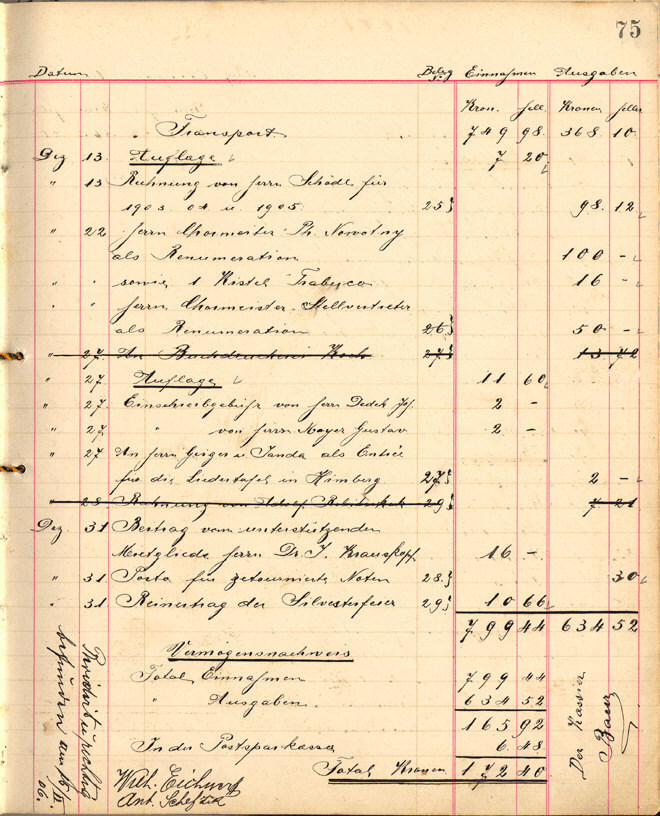 75
Datum Beleg Nr. Einnahmen Ausgaben
Kron. hell. Kronen heller
Transport 749 98. 368. 10.
Dez 13. Auflage 7 20
" 13 Rechnung von Herrn Schödl für
1903 04 u. 1905. 25 98. 12
" 22 Herrn Chormeister Ph. Nowotny
als Renumeration 100 -
" " sowie 1 Kistel Trabuco 16 -
" " Herrn Chormeister-Stellvertreter
als Renumeration 26 50 -
" 27 An Buchdruckerei Koch 27 13 72
" 27 Auflage 11 60
" 27. Einschreibgebühr von Herrn Dedek Jos. 2 -
" 27. " von Herrn Mayer Gustav 2 -
" 27 An Herrn Geiger u. Janda als Entrée
für die Liedertafel in Himberg 27 2 -
" 28 Rechnung von Adolf 29 7 21
Dez. 31 Beitrag vom unterstützenden
Mietgliede Herrn Dr. J. Krauskopf 16 -
" 31 Porto für retournierte Noten 28. 30
" 31 Reinertrag der Silvesterfeier 29 10 66
799 44 634 52
Vermögensnachweis
Total Einnahmen 799 44
" Ausgaben 634 52
165 92
In der Postsparkassa 6. 48.
Total Kronen 172 40
Der Kassier
Baur
Revidiert u. richtig
befunden am 16/II.
06.
Wilh.
Ant.